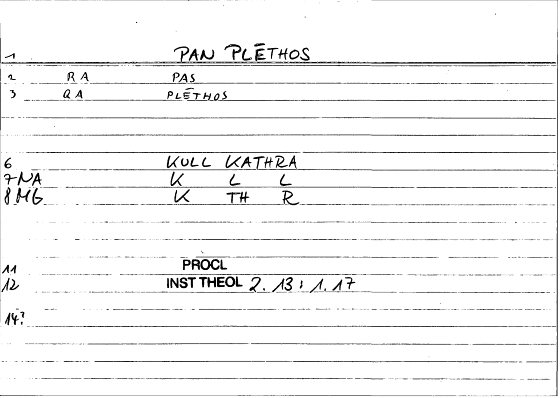 1 PAN PLĒTHOS
2 RA PAS
3 QA PLĒTHOS
6 KULL KATHRA
7 NA K L L
8 MG K TH R
11 PROCL
12 INST THEOL 2.13 : 1.17
14?